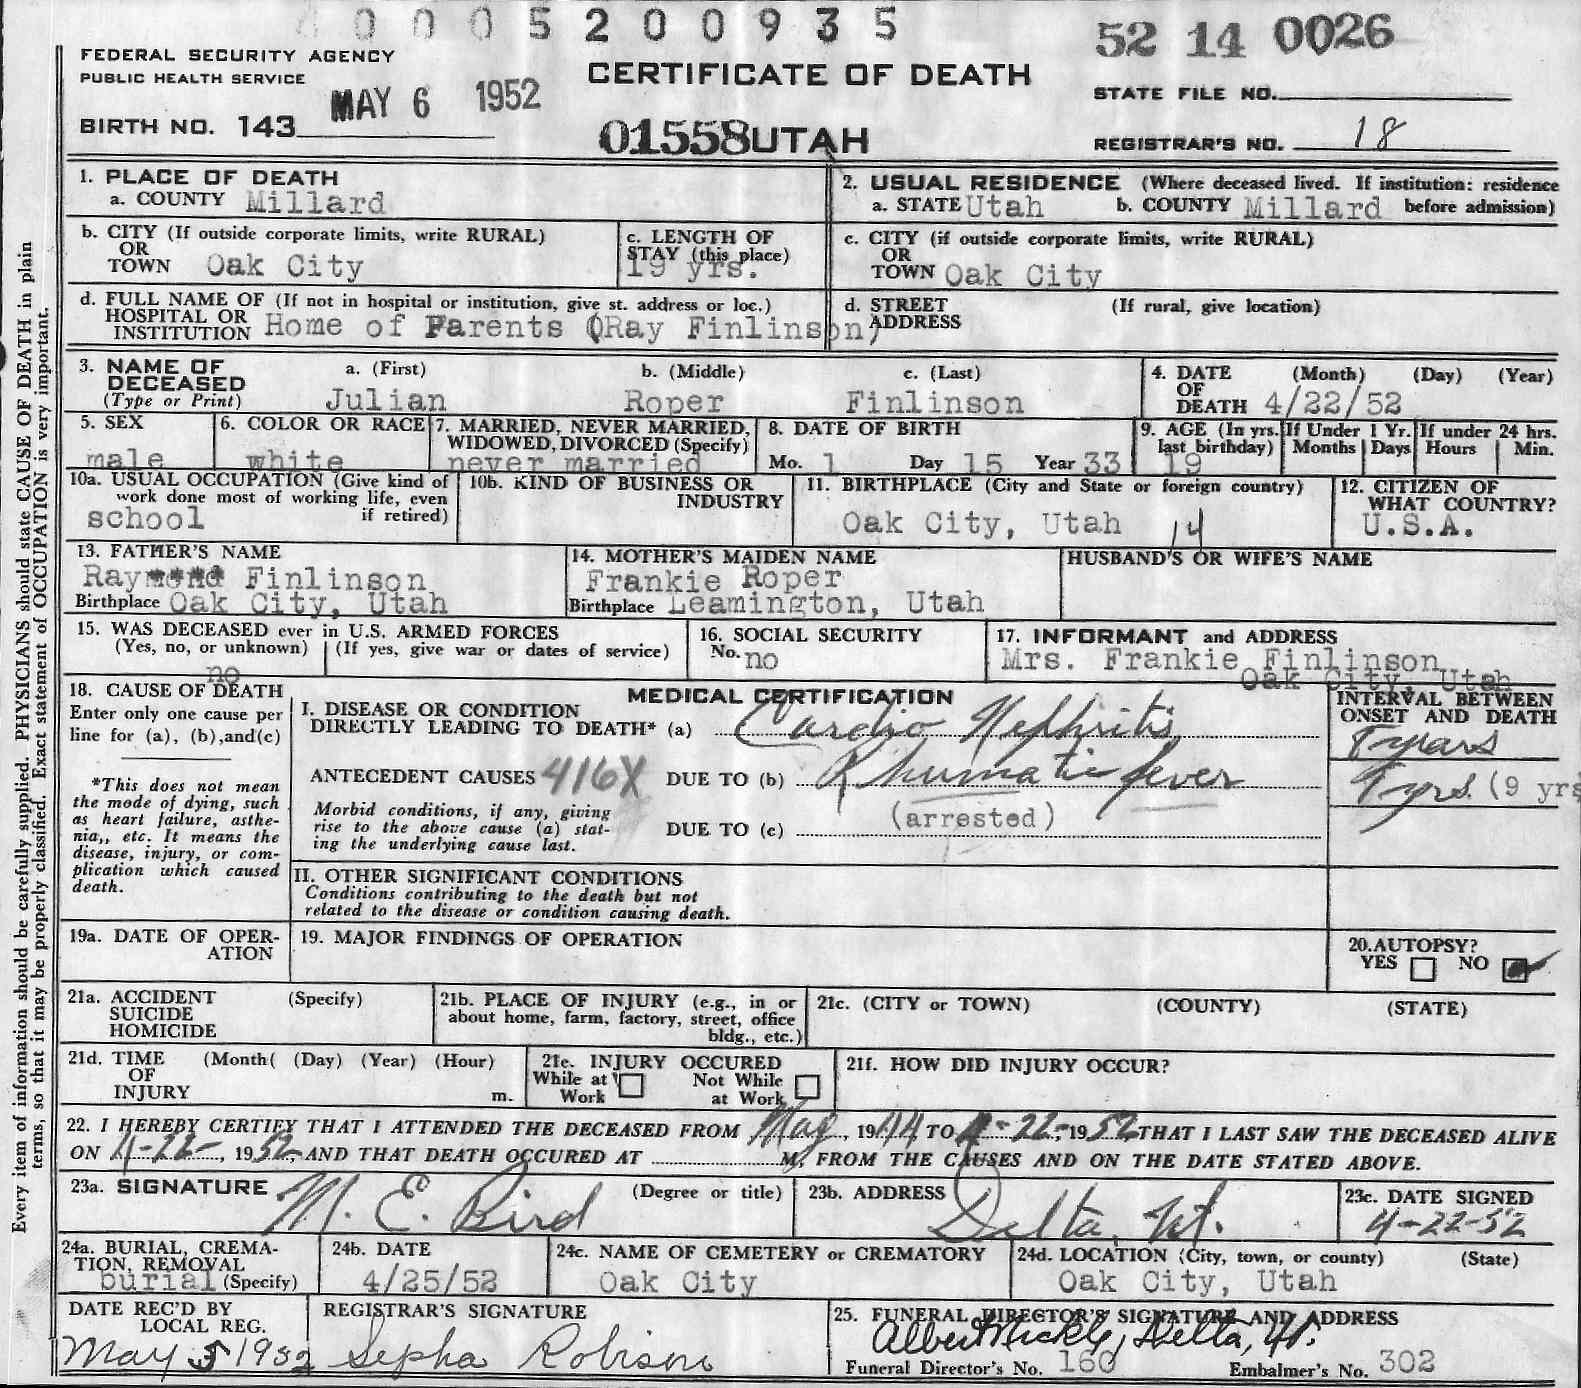 0005200935
52 14 0026
FEDERAL SECURITY AGENCY
PUBLIC HEALTH SERVICE
CERTIFICATE OF DEATH
MAY 6 1952
STATE FILE NO.
BIRTH NO. 143
01558 UTAH
REGISTRAR'S NO. 18
Every item of information should be carefully supplied. PHYSICIANS should state CAUSE OF DEATH in plain
terms, so that it may be properly classified. Exact statement of OCCUPATION is very important.
1. PLACE OF DEATH
a. COUNTY Millard
2. USUAL RESIDENCE (Where deceased lived. If institution: residence
a. STATE Utah b. COUNTY Millard before admission)
b. CITY (If outside corporate limits, write RURAL)
OR
TOWN Oak City
c. LENGTH OF
STAY (this place)
19 yrs.
c. CITY (if outside corporate limits, write RURAL)
OR
TOWN Oak City
d. FULL NAME OF (If not in hospital or institution, give st. address or loc.)
HOSPITAL OR
INSTITUTION Home of Parents (Ray Finlinson)
d. STREET (If rural, give location)
ADDRESS
3. NAME OF
DECEASED
(Type or Print)
a. (First) b. (Middle) c. (Last)
Julian Roper Finlinson
4. DATE (Month) (Day) (Year)
OF
DEATH 4/22/52
5. SEX
male
6. COLOR OR RACE
white
7. MARRIED, NEVER MARRIED,
WIDOWED, DIVORCED (Specify)
never married
8. DATE OF BIRTH
Mo. 1 Day 15 Year 33
9. AGE (In yrs.
last birthday)
19
If Under 1 Yr.
Months Days
If under 24 hrs.
Hours Min.
10a. USUAL OCCUPATION (Give kind of
work done most of working life, even
if retired)
school
10b. KIND OF BUSINESS OR
INDUSTRY
11. BIRTHPLACE (City and State or foreign country)
Oak City, Utah 14
12. CITIZEN OF
WHAT COUNTRY?
U.S.A.
13. FATHER'S NAME
Raymond Finlinson
Birthplace Oak City, Utah
14. MOTHER'S MAIDEN NAME
Frankie Roper
Birthplace Leamington, Utah
HUSBAND'S OR WIFE'S NAME
15. WAS DECEASED ever in U.S. ARMED FORCES
(Yes, no, or unknown) (If yes, give war or dates of service)
no
16. SOCIAL SECURITY
No. no
17. INFORMANT and ADDRESS
Mrs. Frankie Finlinson
Oak City, Utah
18. CAUSE OF DEATH
Enter only one cause per
line for (a), (b),and(c)
*This does not mean
the mode of dying, such
as heart failure, asthe-
nia,, etc. It means the
disease, injury, or com-
plication which caused
death.
MEDICAL CERTIFICATION
I. DISEASE OR CONDITION
DIRECTLY LEADING TO DEATH* (a) Cardio Nephritis
ANTECEDENT CAUSES 416X DUE TO (b) Rhumatic fever
(arrested)
Morbid conditions, if any, giving
rise to the above cause (a) stat-
ing the underlying cause last.
DUE TO (c)
INTERVAL BETWEEN
ONSET AND DEATH
8 years
9 yrs. (9 yrs
II. OTHER SIGNIFICANT CONDITIONS
Conditions contributing to the death but not
related to the disease or condition causing death.
19a. DATE OF OPER-
ATION
19. MAJOR FINDINGS OF OPERATION
20. AUTOPSY?
YES NO
21a. ACCIDENT (Specify)
SUICIDE
HOMICIDE
21b. PLACE OF INJURY (e.g., in or
about home, farm, factory, street, office
bldg., etc.)
21c. (CITY or TOWN) (COUNTY) (STATE)
21d. TIME (Month( (Day) (Year) (Hour)
OF
INJURY m.
21e. INJURY OCCURED
While at Work Not While at Work
21f. HOW DID INJURY OCCUR?
22. I HEREBY CERTIFY THAT I ATTENDED THE DECEASED FROM May, 1944, TO 4-22-, 1952 THAT I LAST SAW THE DECEASED ALIVE
ON 4-22-, 1952, AND THAT DEATH OCCURED AT M. FROM THE CAUSES AND ON THE DATE STATED ABOVE.
23a. SIGNATURE (Degree or title)
M. E. Bird
23b. ADDRESS
Delta, Ut.
23c. DATE SIGNED
4-22-52
24a. BURIAL, CREMA-
TION, REMOVAL
burial (Specify)
24b. DATE
4/25/52
24c. NAME OF CEMETERY or CREMATORY
Oak City
24d. LOCATION (City, town, or county) (State)
Oak City, Utah
DATE REC'D BY
LOCAL REG.
May 5 1952
REGISTRAR'S SIGNATURE
Sepha Robison
25. FUNERAL DIRECTOR'S SIGNATURE AND ADDRESS
Albert Nickle, Delta, Ut.
Funeral Director's No. 160 Embalmer's No. 302